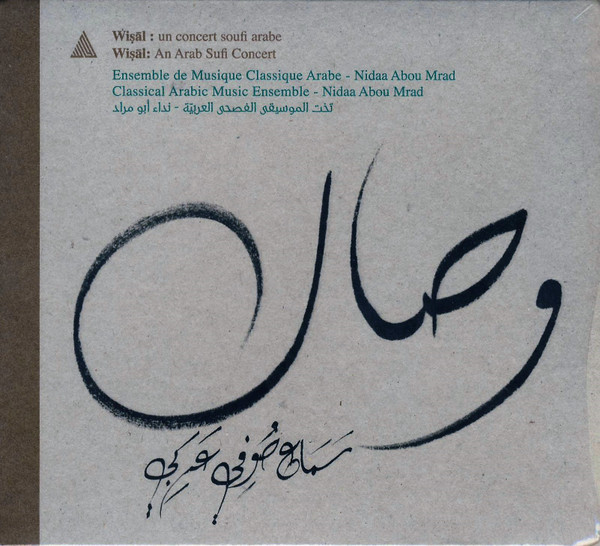 Wiṣāl : un concert soufi arabe
Wiṣāl: An Arab Sufi Concert
Ensemble de Musique Classique Arabe - Nidaa Abou Mrad
Classical Arabic Music Ensemble - Nidaa Abou Mrad
تخت الموسيقى الفصحى العربيّة - نداء أبو مراد
وصال
سَمَاع صُوفي عَرَبي